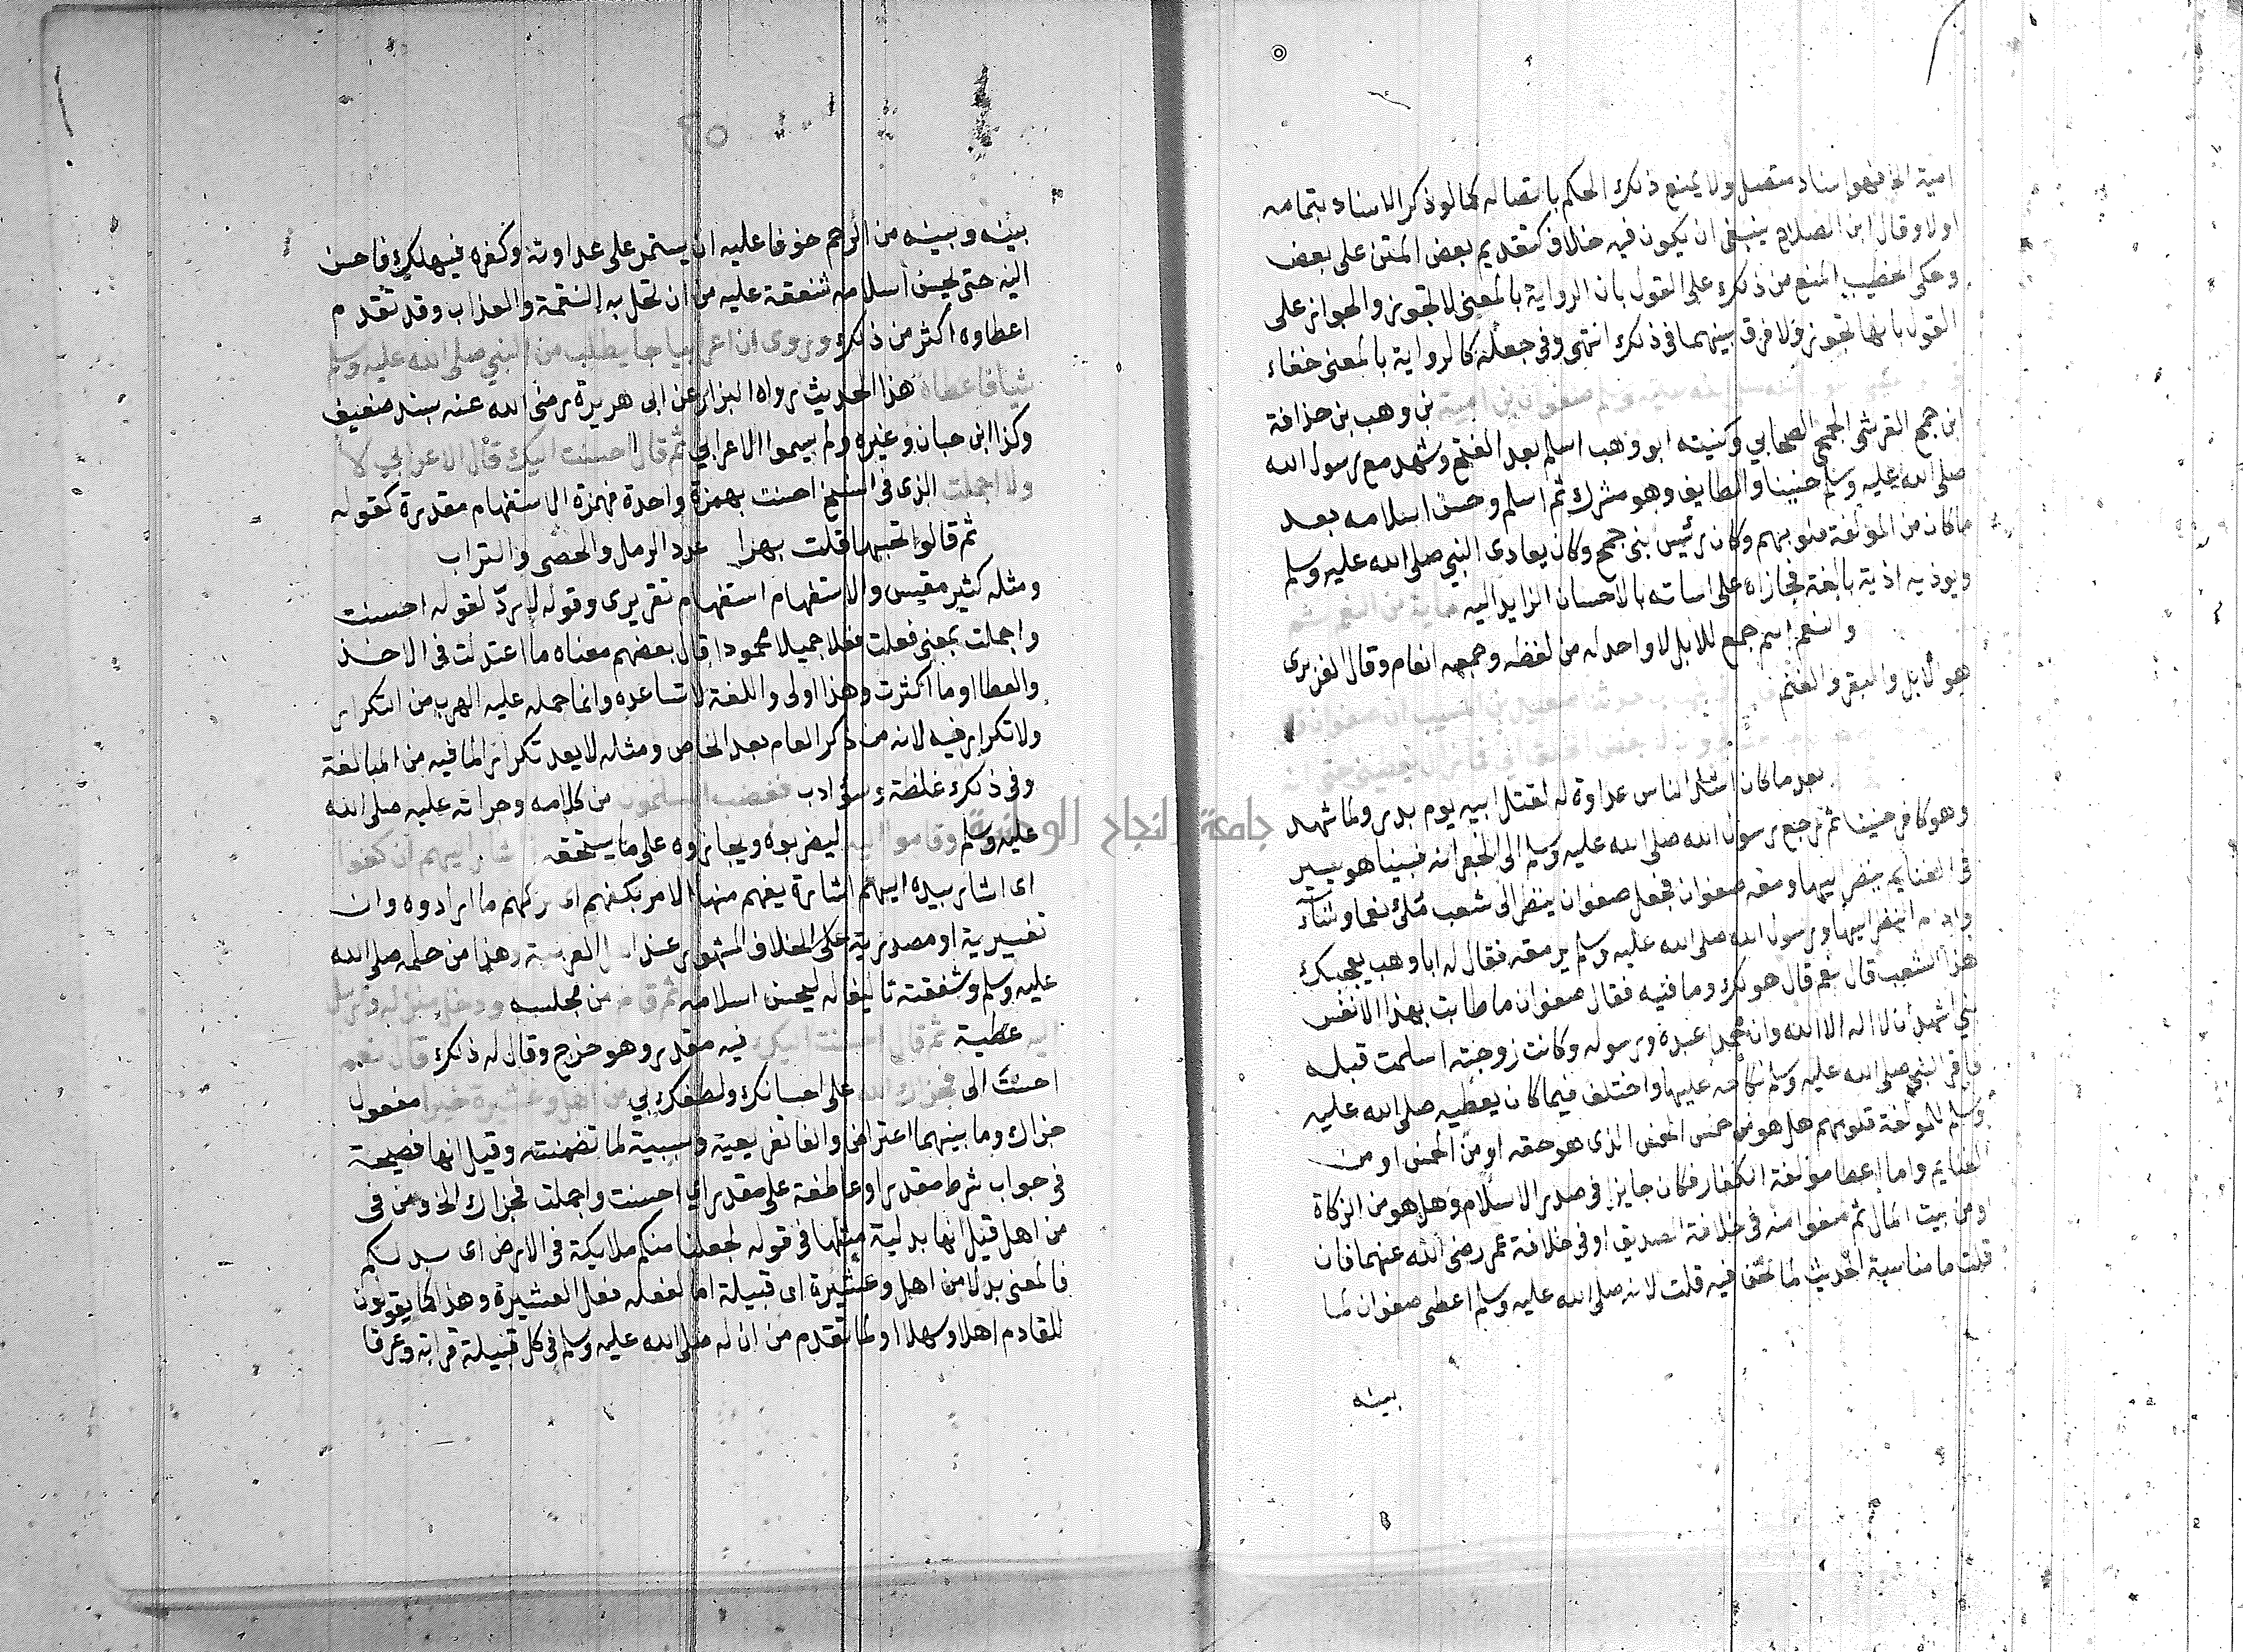 امية الخ فهو اسناد متصل ولا يمنع ذلك الحكم باتصاله كما لو ذكر الاسناد بتمامه
اولا وقال ابن الصلاح ينبغي ان يكون فيه خلاف كتقديم بعض المتن على بعض
وحكى الخطيب المنع من ذلك على القول بان الرواية بالمعنى لا تجوز والجواز على
القول بانها تجوز ولا فرق بينهما في ذلك انتهى وفي جعله كالرواية بالمعنى خفاء
صفوان بن امية بن وهب بن حذافة
ابن جمح القرشي الجمحي الصحابي وكنيته ابو وهب اسلم بعد الفتح وشهد مع رسول الله
صلى الله عليه وسلم حنينا والطايف وهو مشرك ثم اسلم وحسن اسلامه بعد
ما كان من المؤلفة قلوبهم وكان رئيس بني جمح وكان يعادي النبي صلى الله عليه وسلم
ويوذيه اذية بالغة فجازاه على اساته بالاحسان الزايد اليه ماية من النعم ثم
والنعم اسم جمع للابل لا واحد له من لفظه وجمعه انعام وقال الغزيرى
هو الابل والبقر والغنم
بعد ما كان اشد الناس عداوة له لقتل ابيه يوم بدر ولما شهد
وهو كافر حنينا ثم رجع رسول الله صلى الله عليه وسلم الى الجعرانه فبينا هو يسير
في الغنايم ينظر اليها ومعه صفوان فجعل صفوان ينظر الى شعب ملئ نعما وشاء
وادام النظر اليها ورسول الله صلى الله عليه وسلم يرمقه فقال له ابا وهب يعجبك
هذا الشعب قال نعم قال هو لك وما فيه فقال صفوان ما طابت بهذا الا نفس
نبي اشهد ان لا اله الا الله وان محمدا عبده ورسوله وكانت زوجته اسلمت قبله
فاقر النبي صلى الله عليه وسلم نكاحه عليها واختلف فيما كان يعطيه صلى الله عليه
وسلم للمولفة قلوبهم هل هو من خمس الخمس الذى هو حقه او من الخمس او من
الغنايم واما اعطا مؤلفة الكفار فكان جايزا في صدر الاسلام وهل هو من الزكاة
او من بيت المال ثم منعوا منه في خلافة الصديق او في خلافة عمر رضى الله عنهما فان
قلت ما مناسبة الحديث لما نحن فيه قلت لانه صلى الله عليه وسلم اعطى صفوان لما
بينه
٢٥
بينه وبينه من الرحم خوفا عليه ان يستمر على عداوته وكفره فيهلك فاحسن
اليه حتى يحسن اسلامه شفقة عليه من ان تحل به النقمة والعذاب وقد تقدم
اعطاوه اكثر من ذلك وروى ان اعرابيا جا يطلب من النبي صلى الله عليه وسلم
شيا فاعطاه هذا الحديث رواه البزار عن ابى هريرة رضى الله عنه بسند ضعيف
وكذا ابن حبان وغيره ولم يسموا الاعرابي ثم قال احسنت اليك قال الاعرابي لا
ولا اجملت الذى في النسخ احسنت بهمزة واحدة فهمزة الاستفهام مقدرة كقوله
ثم قالوا تحبها قلت بهرا عدد الرمل والحصى والتراب
ومثله كثير مقيس والاستفهام استفهام تقريرى وقوله لا رد لقوله احسنت
واجملت بمعنى فعلت فعلا جميلا محمودا قال بعضهم معناه ما اعتدلت فى الاخذ
والعطا او ما اكثرت وهذا اولى واللغة لا تساعده وانما حمله عليه الهرب من التكرار
ولا تكرار فيه لانه من ذكر العام بعد الخاص ومثله لا يعد تكرارا لما فيه من المبالغة
وفى ذلك غلظة وسؤ ادب فغضب المسلمون من كلامه وجراته عليه صلى الله
عليه وسلم وقاموا اليه ليضربوه ويجازوه على ما يستحقه فاشار اليهم ان كفوا
اى اشار بيده اليهم اشارة يفهم منها الامر بكفهم اى تركهم ما ارادوه وان
تفسيرية او مصدرية على الخلاف المشهور عند اهل العربية وهذا من حلمه صلى الله
عليه وسلم وشفقته تاليفا له ليحسن اسلامه ثم قام من مجلسه ودخل منزله وارسل
اليه عطية ثم قال احسنت اليك فيه مقدر وهو خرج وقال له ذلك قال نعم
احسنت الى فجزاك الله على احسانك ولطفك بي من اهل وعشيرة خيرا مفعول
جزاك وما بينهما اعتراض والفا تفريعية وسببية لما تضمنته وقيل انها فصيحة
في جواب شرط مقدر او عاطفة على مقدر اي احسنت واجملت فجزاك الخ ومن في
من اهل قيل انها بدلية مثلها في قوله لجعلنا منكم ملايكة في الارض اى بدلكم
فالمعنى بدلا من اهل وعشيرة اى قبيلة اما لفعله فعل العشيرة وهذا كما يقولون
للقادم اهلا وسهلا او لما تقدم من ان له صلى الله عليه وسلم في كل قبيلة قرابة وعرقا
جامعة النجاح الوطنية